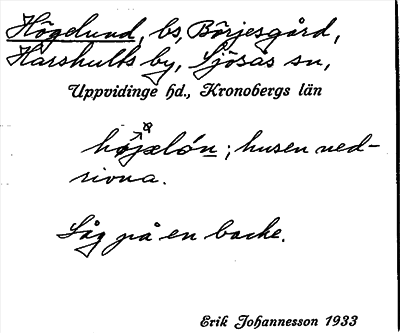 Högelund, bs, Börjesgård,
Harshults by, Sjösås sn,
Uppvidinge hd., Kronobergs län
husen ned-
rivna.
Låg på en backe.
Erik Johannesson 1933